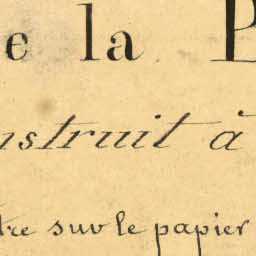 e la P
nstruit à
tre sur le papier